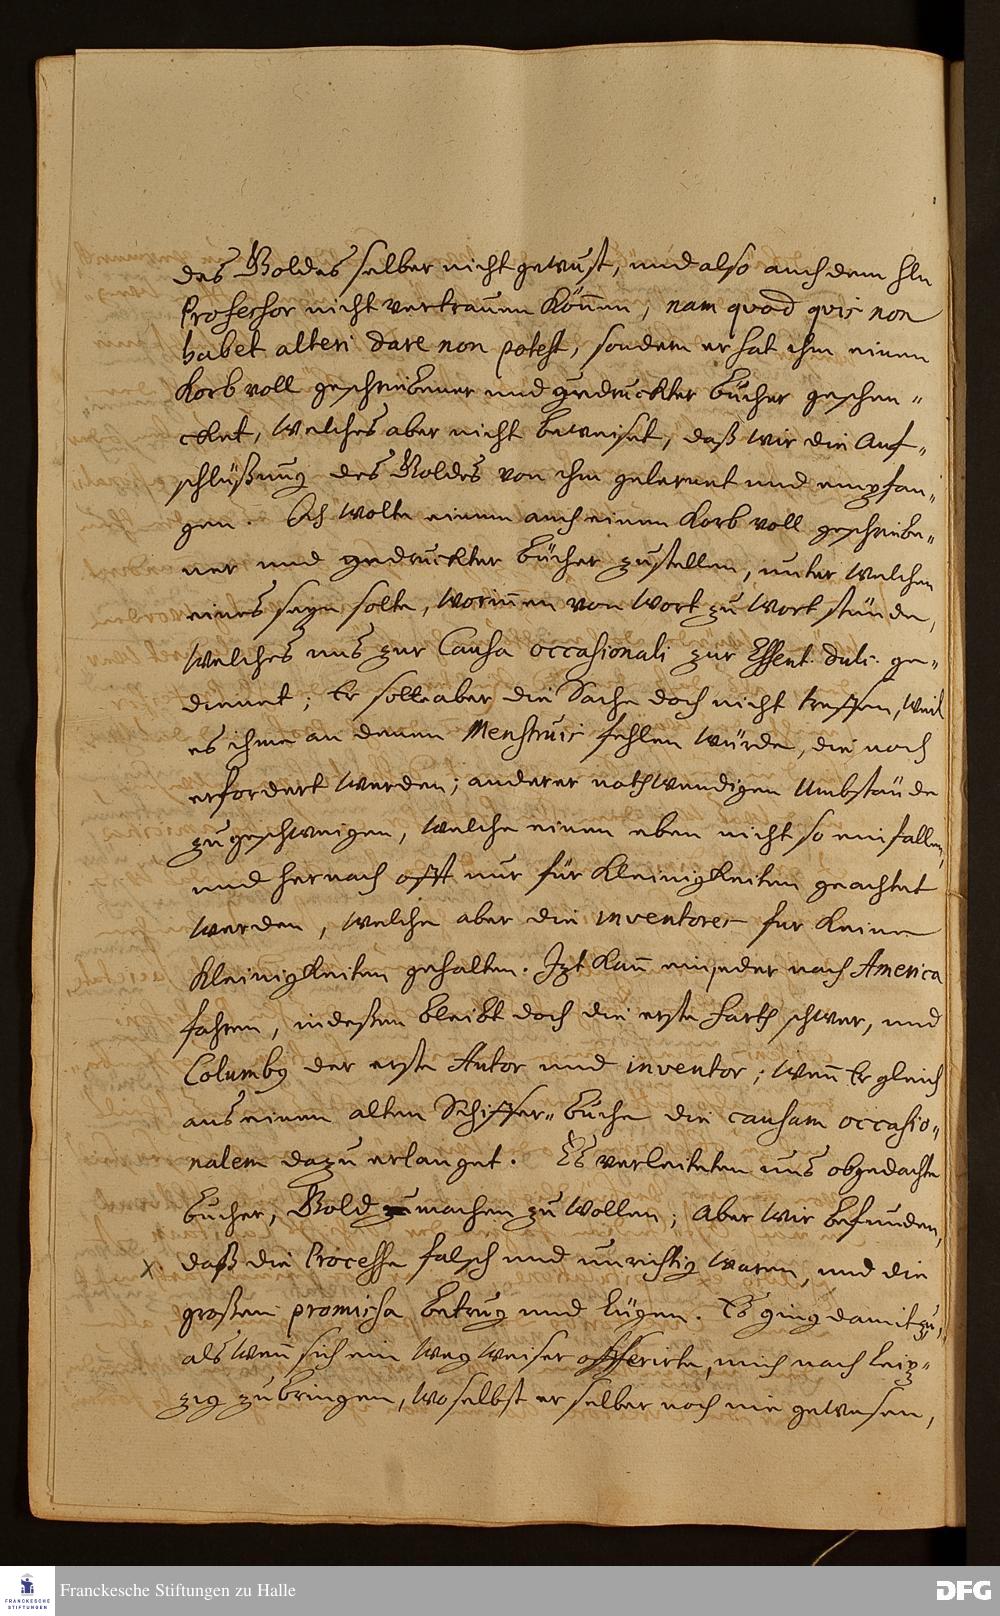 des Goldes selber nicht gewust, und also auch dem Hln
Professor nicht vertrauen können, nam quod quis non
habet alteri dare non potest, sondern er hat ihm einen
Korb voll geschriebener und gedruckter Bücher geschen„
cket, welches aber nicht beweiset, daß wir die Auf„
schlüßung des Goldes von ihm gelernet und empfan„
gen. Ich wolte einem auch einen Korb voll geschriebe„
ner und gedruckter Bücher zustellen, unter welchen
eines seyn solte, worinnen von Wort zu Wort stünde,
welches uns zur Causa occasionali zur Essent. dulc. ge„
dienet; Er solte aber die Sache doch nicht treffen, weil
es ihme an denen Menstruis fehlen würde, die noch
erfordert werden; anderer nothwendigen Umbstände
zugeschweigen, welche einem eben nicht so einfallen,
und hernach offt nur für Kleinigkeiten geachtet
werden, welche aber die inventores für keine
Kleinigkeiten gehalten. Jzt kan̄ ein jeder nach America
fahren, indeßen bleibt doch die erste Farth schwer, und
Columbus der erste Autor und inventor; wen̄ Er gleich
aus einem alten Schiffer„Buche die causam occasio„
nalem dazu erlanget. Es verleiteten uns obgedachte
Bücher, Gold zu machen zu wollen; Aber wir befunden,
x. daß die Processe falsch und unrichtig waren, und die
großen promissa Betrug und Lügen. Es ging damit zu,
als wen̄ sich ein Wegweiser offerirte, mich nach Leip„
zig zu bringen, woselbst er selber noch nie gewesen,
FRANCKESCHE
STIFTUNGEN
Franckesche Stiftungen zu Halle
DFG